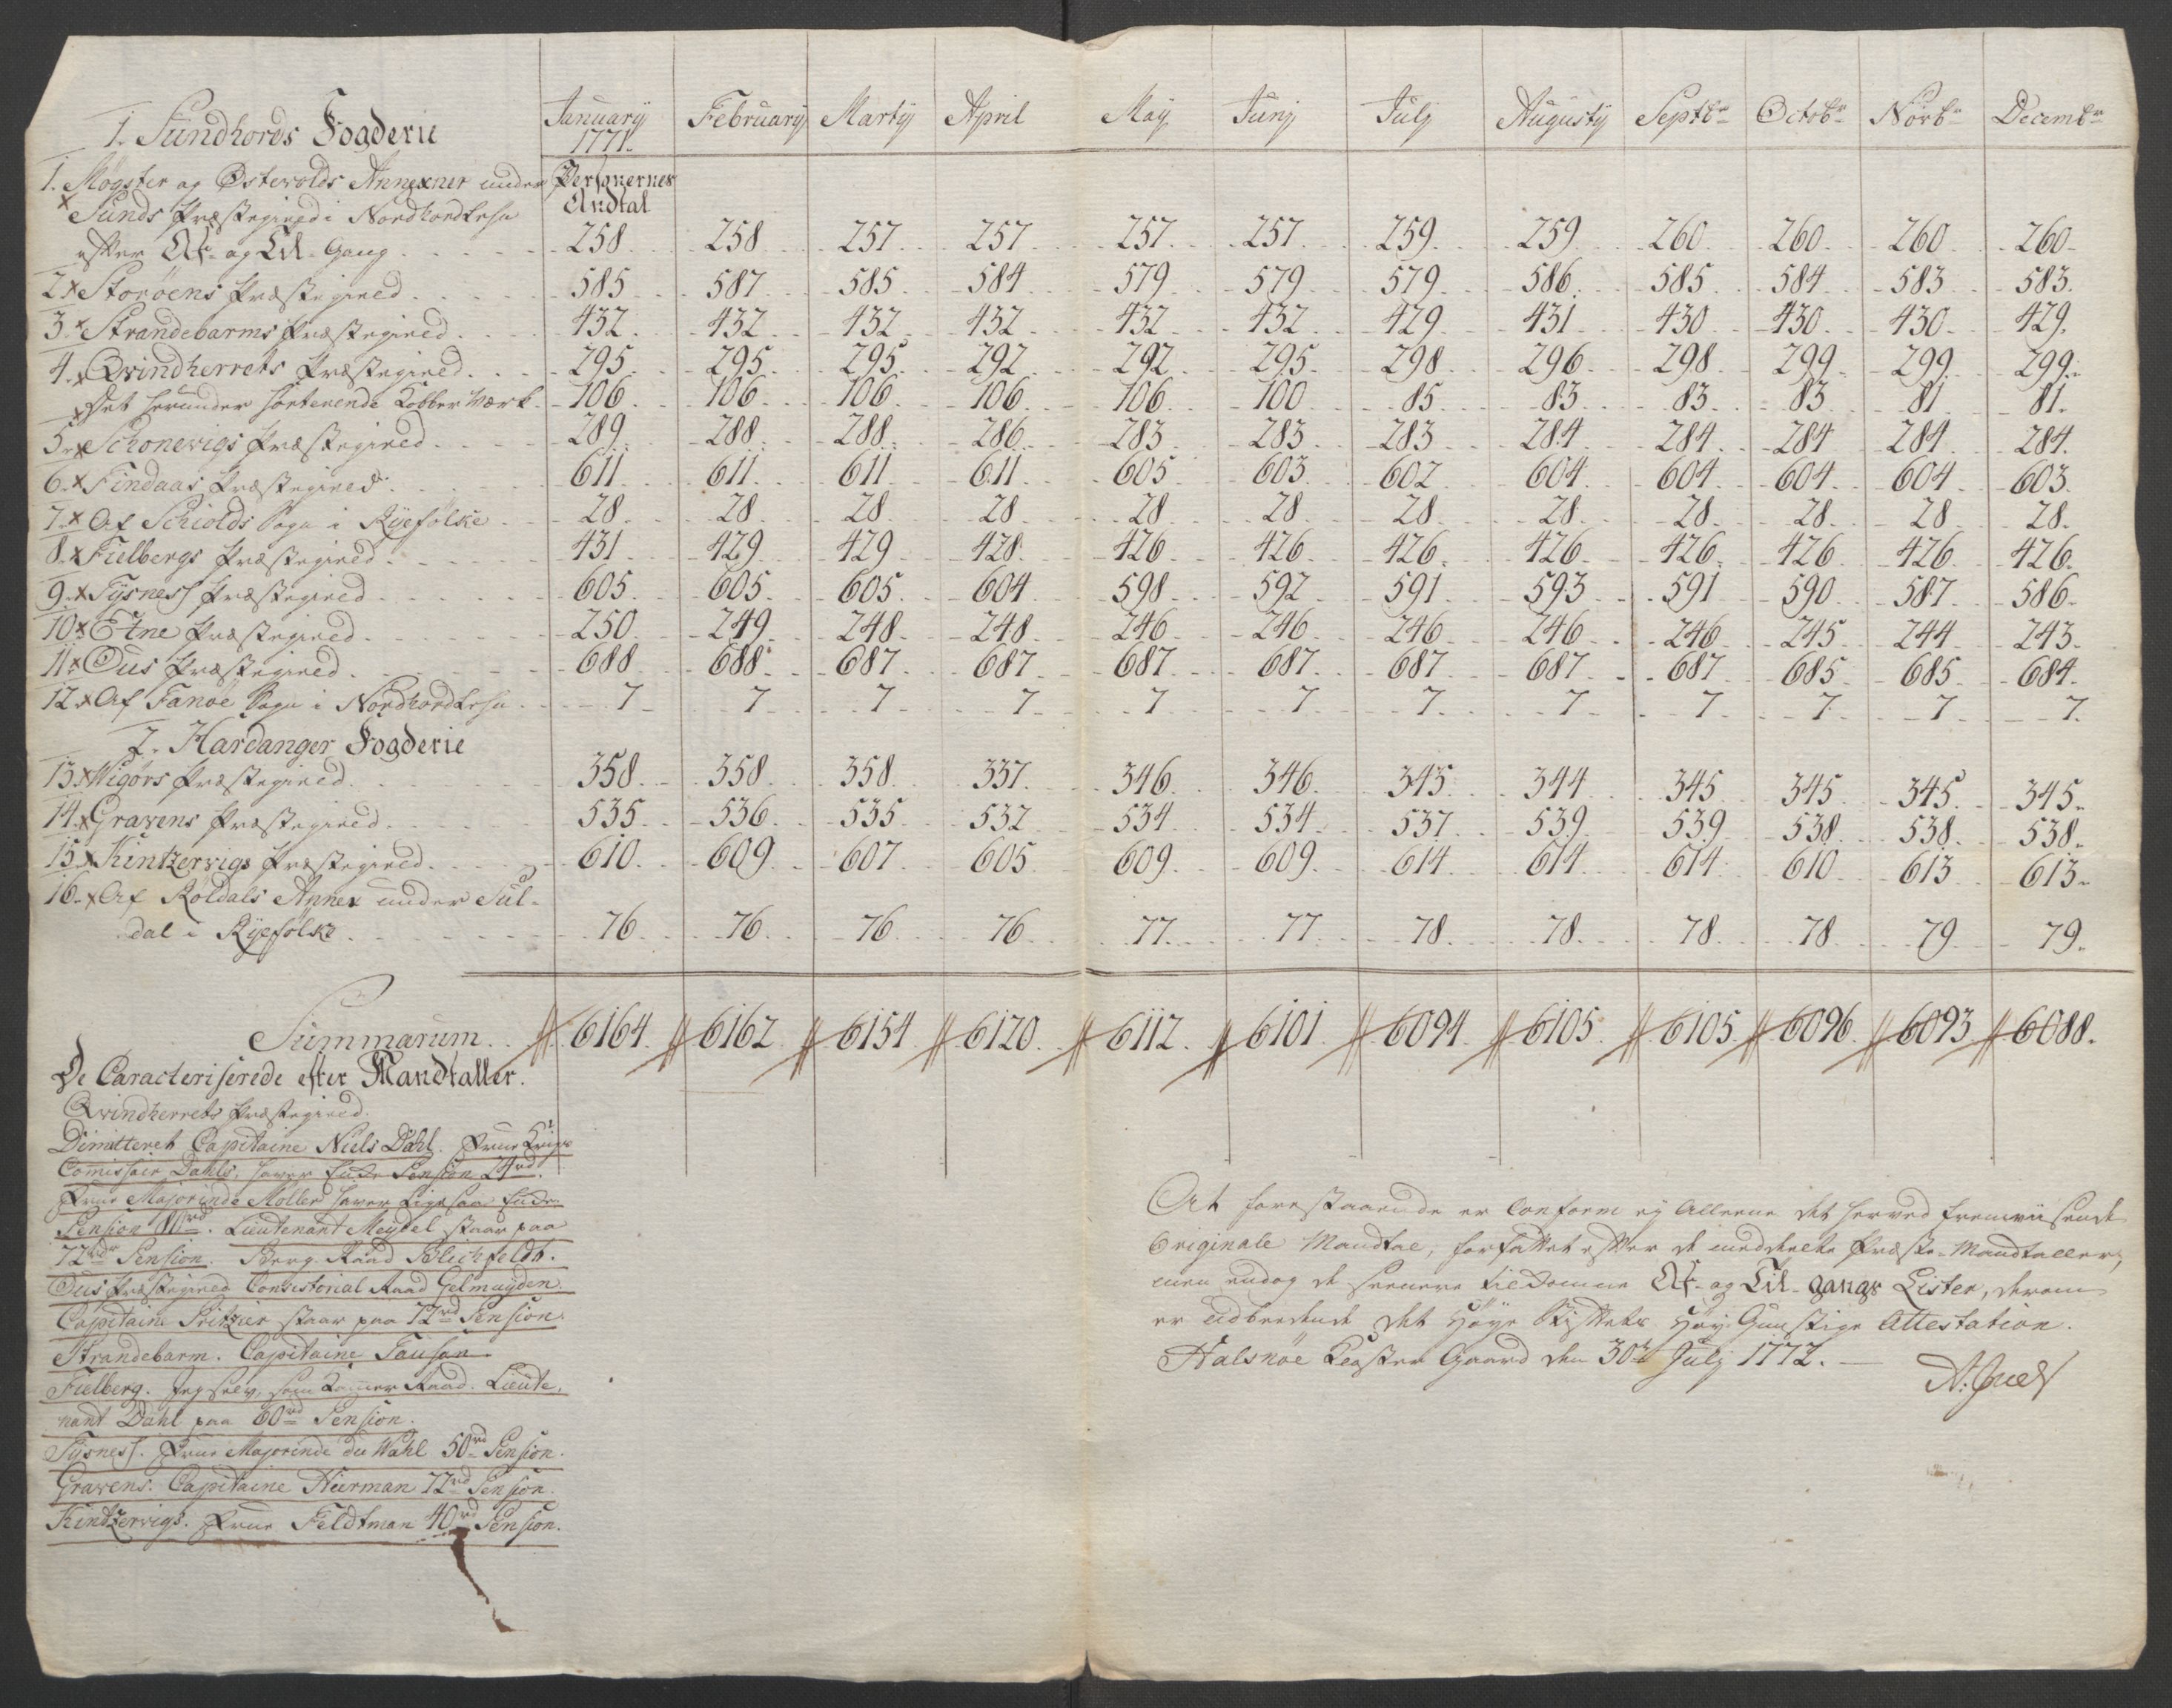 1. Sundhords Fogderie
Januarij 1771. Februarij Martij April Maij Junj Julj Augustij Septbr Octobr Novbr Decembr
1. Mögster og Østewolds Annexner under Personernes
Sunds Præstegield i Nordhordlehn Andtal
efter Af- og Til-Gang 258 258 257 257 257 257 259 259 260 260 260 260
2 x Storöens Præstegield 585 587 585 584 579 579 579 586 585 584 583 583
3 x Strandebarms Præstegield 432 432 432 432 432 432 429 431 430 430 430 429
4. x Qvindherrets Præstegield 295 295 295 292 292 295 298 296 298 299 299 299
x Det herunder sorterende Kobber Værk 106 106 106 106 106 100 85 83 83 83 81 81
5. x Schonevigs Præstegield 289 288 288 286 283 283 283 284 284 284 284 284
6. x Findaas Præstegield 611 611 611 611 605 603 602 604 604 604 604 603
7. x Af Schiolds Sogn i Ryefölke 28 28 28 28 28 28 28 28 28 28 28 28
8. x Fielbergs Præstegield 431 429 429 428 426 426 426 426 426 426 426 426
9. x Tysness Præstegield 605 605 605 604 598 592 591 593 591 590 587 586
10 x Etne Præstegield 250 249 248 248 246 246 246 246 246 245 244 243
11 x Ous Præstegield 688 688 687 687 687 687 687 687 687 685 685 684
12. x Af Fanöe Sogn i Nordhordlehn 7 7 7 7 7 7 7 7 7 7 7 7
2. Hardanger Fogderie
13. x Wigörs Præstegield 358 358 358 337 346 346 345 344 345 345 345 345
14. x Gravens Præstegield 535 536 535 532 534 534 537 539 539 538 538 538
15. x Kintzervigs Præstegield 610 609 607 605 609 609 614 614 614 610 613 613
16. x Af Röldals Annex under Sul-
dal i Ryefölke 76 76 76 76 77 77 78 78 78 78 79 79
Summarum 6164 6162 6154 6120 6112 6101 6094 6105 6105 6096 6093 6088
De Caracteriserede efter Mandtaller.
Qvindherrets Præstegield.
Dimitteret Capitaine Niels Dahl. Frue Krigs
Comissair Dahls, haver Enke Pension 24rd.
Frue Majorinde Moller haver ligesaa Enke
Pension 40rd. Lieutenant Meydel staar paa
72rdr Pension. Berg Raad Blichfeldt.
Ous Præstegield Consistorial Raad Gelmuyden.
Capitaine Pritzier staar paa 72rd Pension.
Strandebarm. Capitaine Tausan
Fielberg. Jeg selv, som Kammer Raad. Lieute-
nant Dahl paa 60rd Pension.
Tysness. Frue Majorinde du Wahl 50rd Pension.
Gravens. Capitaine Hierman 72rd Pension.
Kindtzervigs. Frue Feldtman 40rd Pension.
At forestaaende er Conform ej Alleene det herved fremviisende
Originale Mandtal, forfattet efter de meddeelte Præste-Mandtaller,
men endog de seenere tilkomne Af- og Til-gangs Lister, derom
er udbeedende det Höye Stiftets Höy Gunstige Attestation.
Halsnöe Closter Gaard den 30te Julj 1772.
A: Juel